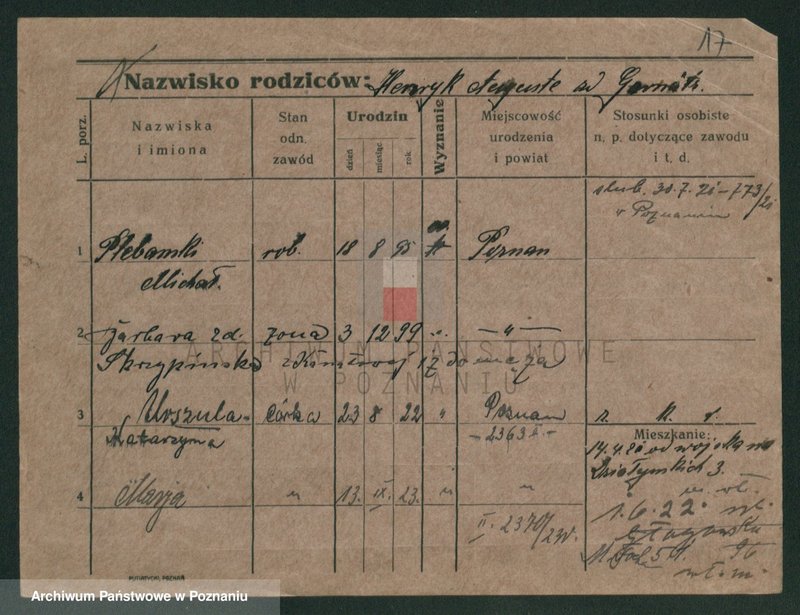 17
Nazwisko rodziców: Henryk Auguste zd
L. porz.
Nazwiska i imiona
Stan odn. zawód
Urodzin
dzień
miesiąc
rok
Wyznanie
Miejscowość urodzenia i powiat
Stosunki osobiste n. p. dotyczące zawodu i t. d.
ślub. 30.7.21 – 773/21
w Poznaniu
1 Plebański rob. 18 8 95 kt Poznań
Michał.
2 Barbara zd. żona 3 12 99 " — " —
Skrzypińska
ARCHIWUM PAŃSTWOWE
W POZNANIU
3 Urszula córka 23 8 22 " Poznań
Katarzyna – 2363 II –
Mieszkanie:
14.4.20 od wojska na
Działyńskich 3.
4 Marja " 13. IX. 23. " "
II. 2370/23
1.6.22.
PUTIATYCKI, POZNAŃ
Archiwum Państwowe w Poznaniu